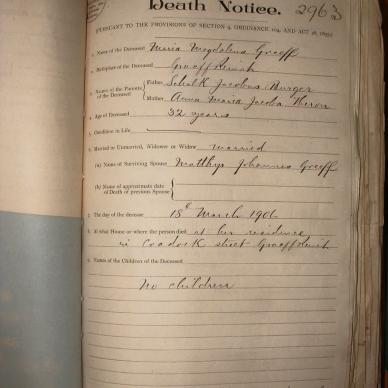 Death Notice. 2963
PURSUANT TO THE PROVISIONS OF SECTION 9, ORDINANCE 104, AND ACT
1. Name of the Deceased Maria Magdalena Graaff
2. Birthplace of the Deceased Graaff Reinet
3. Names of the Parents of the Deceased { Father Schalk Jacobus Burger
Mother Anna Maria Jacoba Theron
4. Age of Deceased 32 years
5. Condition in Life
6. Married or Unmarried, Widower or Widow married
(a) Name of Surviving Spouse Matthys Johannes Graaff
(b) Name of approximate date of Death of previous Spouse {
7. The day of the decease 18th March 1906
8. At what House or where the person died at her residence
in Cradock street Graaff Reinet
9. Names of the Children of the Deceased
No children